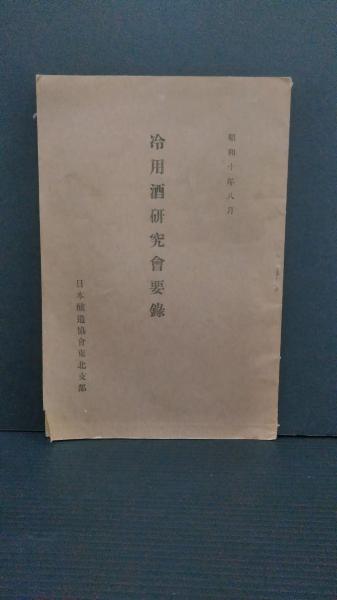 昭和十年八月
冷用酒研究會要錄
日本醸造協會東北支部